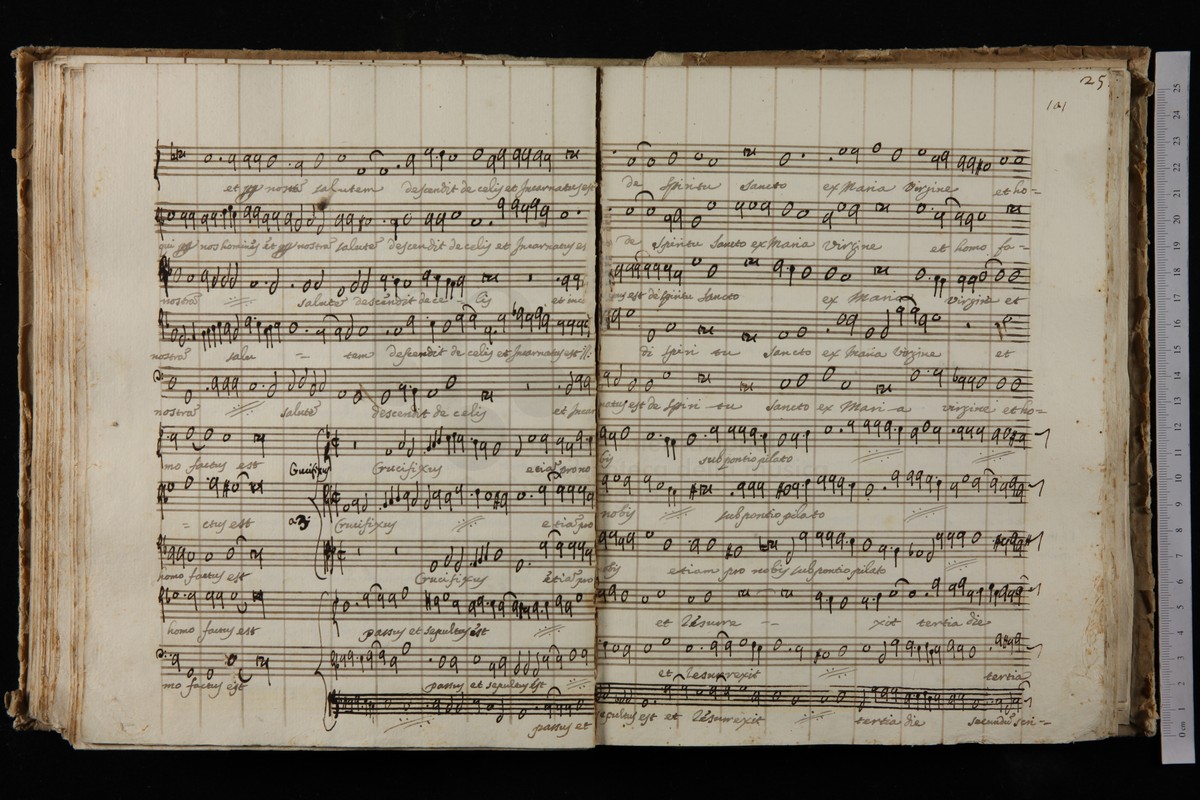 25
et nostra salutem descendit de celis et Incarnatus est
qui nos homines et nostra salute descendit de celis et Incarnatus es
nostra salute descendit de ce lis et
nostra salu - tem descendit de celis et Incarnatus est
nostra salute descendit de celis et Incar
mo factus est Crucifixus Crucifixus etia pro no
= ctus est a 3 Crucifixus etia pro
homo factus est Crucifixus etia pro
homo factus est passus et sepultus est
mo factus est passus et sepultus est
passus et
de Spiritu Sancto ex Maria Virgine et ho=
de Spiritu Sancto ex Maria Virgine et homo fa-=
est de Spiritu Sancto ex Maria Virgine et
di Spiri tu Sancto ex Maria Virgine et
natus est de Spiri - tu Sancto ex Mari - a virgine et ho=
bis sub pontio pilato
nobis sub pontio pilato
bis etiam pro nobis sub pontio pilato
et Resurre - - xit tertia die
et Resurrexit tertia
sepultus est et Resurrexit tertia die secundu scri-=